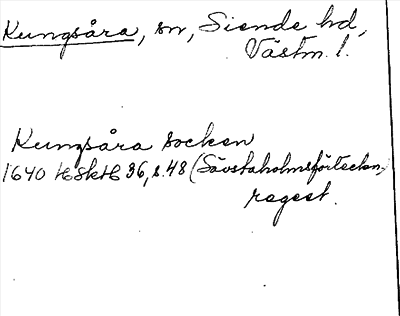 Kungsåra, sn, Siende hd,
Västm. l.
Kungsåra socken
1640 HSkH 36, s. 48 (Sävstaholmsförteckn.,
regest.